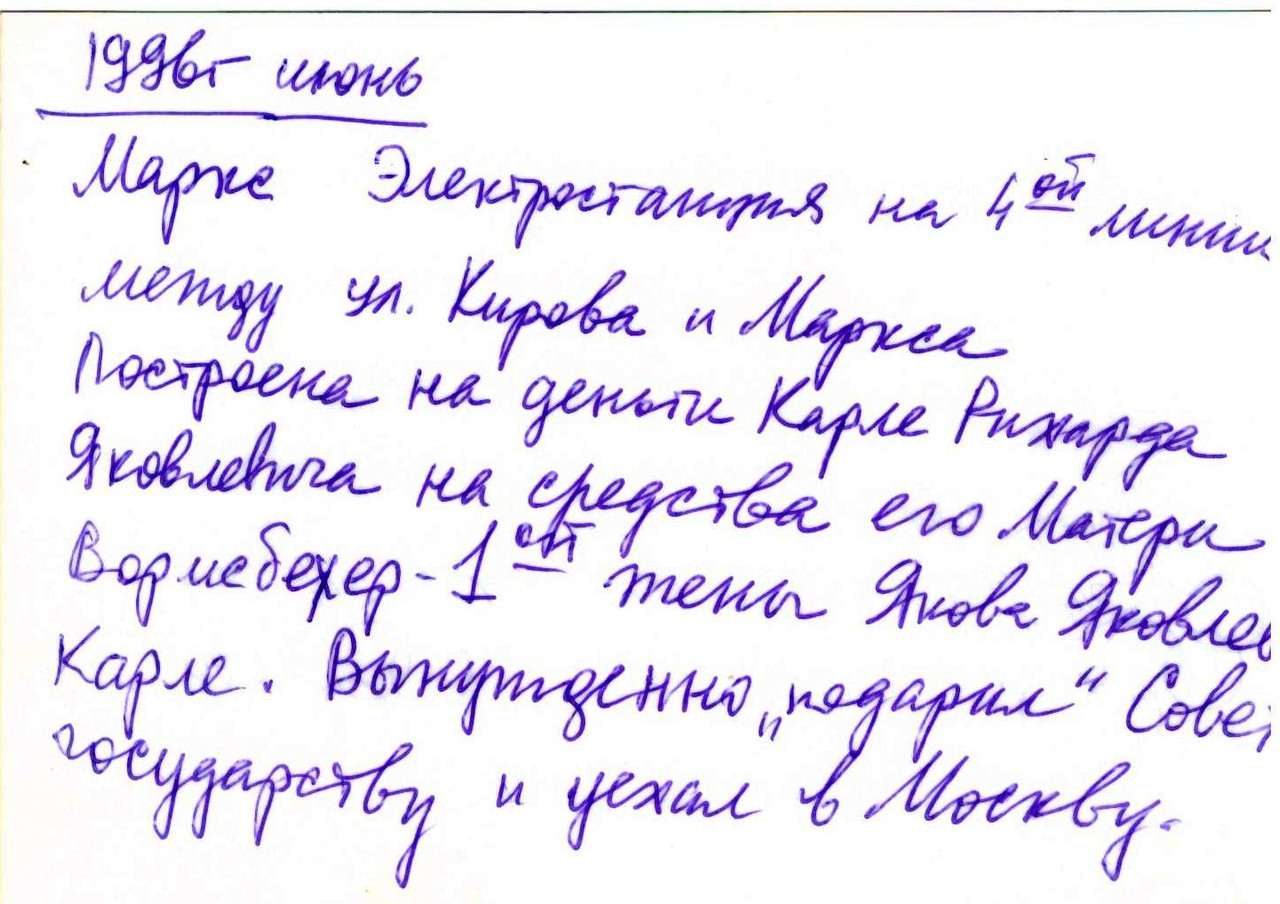 1996г июнь
Маркс Электростанция на 4ой линии
между ул. Кирова и Маркса
Построена на деньги Карле Рихарда
Яковлевича на средства его Матери
Вормсбехер - 1ой жены Якова Яковлев
Карле. Вынужденно „подарил“ Совет
государству и уехал в Москву.